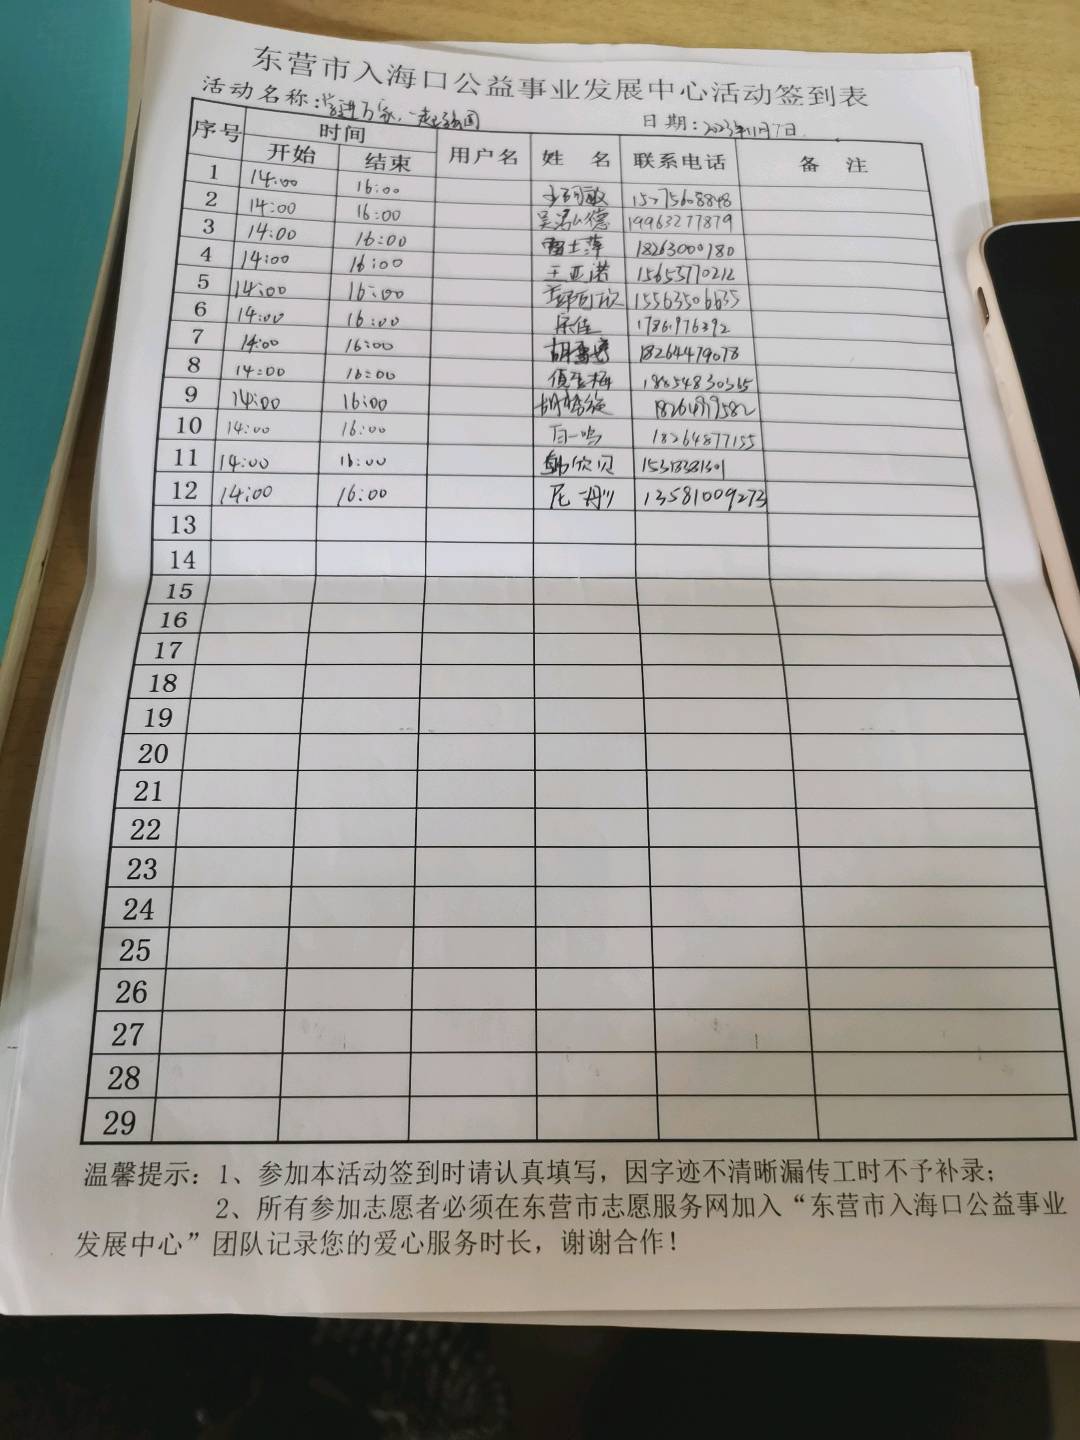 东营市入海口公益事业发展中心活动签到表
活动名称: 进万家,一起 日期: 2023年11月7日
序号 时间 用户名 姓 名 联系电话 备 注
开始 结束
1 14:00 16:00
2 14:00 16:00 吴泓德 19963277879
3 14:00 16:00 18263000180
4 14:00 16:00 王亚诺 15655770212
5 14:00 16:00 15563506635
6 14:00 16:00
7 14:00 16:00 18264479078
8 14:00 16:00
9 14:00 16:00
10 14:00 16:00 白一鸣 18264877155
11 14:00 16:00
12 14:00 16:00 13581009273
13
14
15
16
17
18
19
20
21
22
23
24
25
26
27
28
29
温馨提示: 1、参加本活动签到时请认真填写,因字迹不清晰漏传工时不予补录;
2、所有参加志愿者必须在东营市志愿服务网加入“东营市入海口公益事业
发展中心”团队记录您的爱心服务时长,谢谢合作!